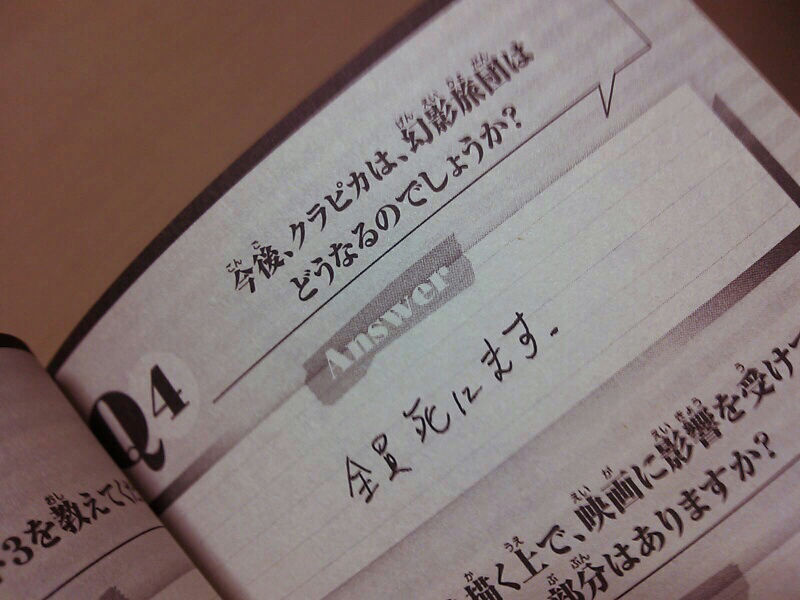 Q4
今後、クラピカは、幻影旅団は
どうなるのでしょうか?
Answer
全員死にます.
3を教えてく
描く上で、映画に影響を受けて
部分はありますか?